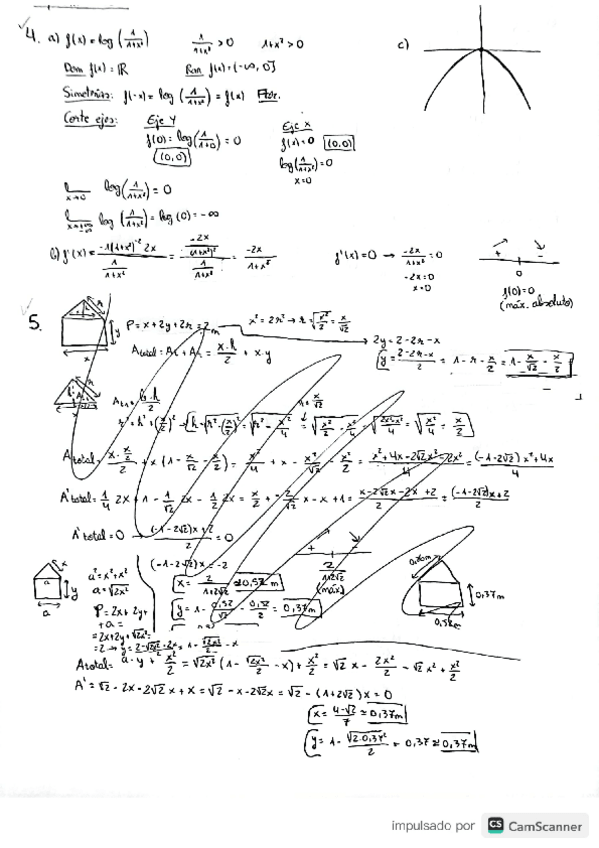 4. a) f(x) = log (1/(1+x²))   1/(1+x²) > 0   1+x² > 0   c)
Dom f(x) = ℝ   Ran f(x) = (-∞, 0]
Simetrías: f(-x) = log (1/(1+x²)) = f(x) Par.
Corte ejes: Eje Y   Eje X
f(0) = log (1/(1+0)) = 0   f(x) = 0 (0,0)
(0,0)   log (1/(1+x²)) = 0
x = 0
lim x→0 log (1/(1+x²)) = 0
log (1/(1+x²)) = log (0) = -∞
b) f'(x) = (-1(1+x²)⁻² 2x)/(1/(1+x²)) = (-2x/(1+x²)²)/(1/(1+x²)) = -2x/(1+x²)   f'(x) = 0 → -2x/(1+x²) = 0   + -
-2x = 0   0
x = 0   f(0) = 0
(máx. absoluto)
5. x y P = x + 2y + 2r = 2m   x² = 2r² → r = √(x²/2) = x/√2
2y = 2 - 2r - x
A total = A₁ + A₂ = x·h/2 + x·y   y = (2-2r-x)/2 = 1 - r - x/2 = 1 - x/√2 - x/2
A = b·h/2   r = x/√2
r² = h² + (x/2)² → h = √(r² - (x/2)²) = √(r² - x²/4) = √(x²/2 - x²/4) = √((2x²-x²)/4) = √(x²/4) = x/2
A total = (x · x/2)/2 + x (1 - x/√2 - x/2) = x²/4 + x - x²/√2 - x²/2 = (x² + 4x - 2√2 x² - 2x²)/4 = ((-1-2√2) x² + 4x)/4
A' total = 1/4 2x + 1 - 1/√2 2x - 1/2 2x = x/2 + -2/√2 x - x + 1 = (x - 2√2x - 2x + 2)/2 = ((-1-2√2)x + 2)/2
A' total = 0 → ((-1-2√2)x + 2)/2 = 0
(-1-2√2)x = -2   + -
x = 2/(1+2√2) ≈ 0,52m   2/(1+2√2)
(máx)
y = 1 - 0,52/√2 - 0,52/2 = 0,37m
x a y a   a² = x² + x²   0,37m
a = √(2x²)
P = 2x + 2y +
+ a =
= 2x + 2y + √(2x²) =
= 2 → y = (2 - √(2x²) - 2x)/2 = 1 - √(2x²)/2 - x
A total = a · y + x²/2 = √(2x²) (1 - √(2x²)/2 - x) + x²/2 = √2 x - 2x²/2 - √2 x² + x²/2
A' = √2 - 2x - 2√2 x + x = √2 - x - 2√2x = √2 - (1+2√2) x = 0
x = (4-√2)/7 ≈ 0,37m
y = 1 - √(2·0,37²)/2 - 0,37 ≈ 0,37m
impulsado por CS CamScanner